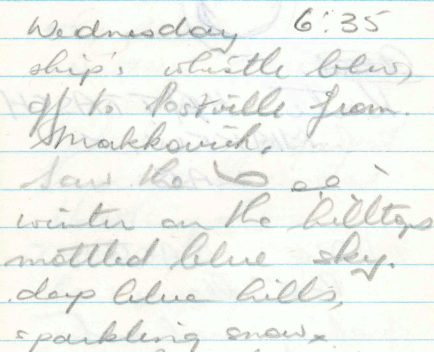 Wednesday 6:35
ship's whistle blew,
off to Postville from.
Makkovik.
Saw the
winter on the hilltops
mottled blue sky.
deep blue hills,
sparkling snow